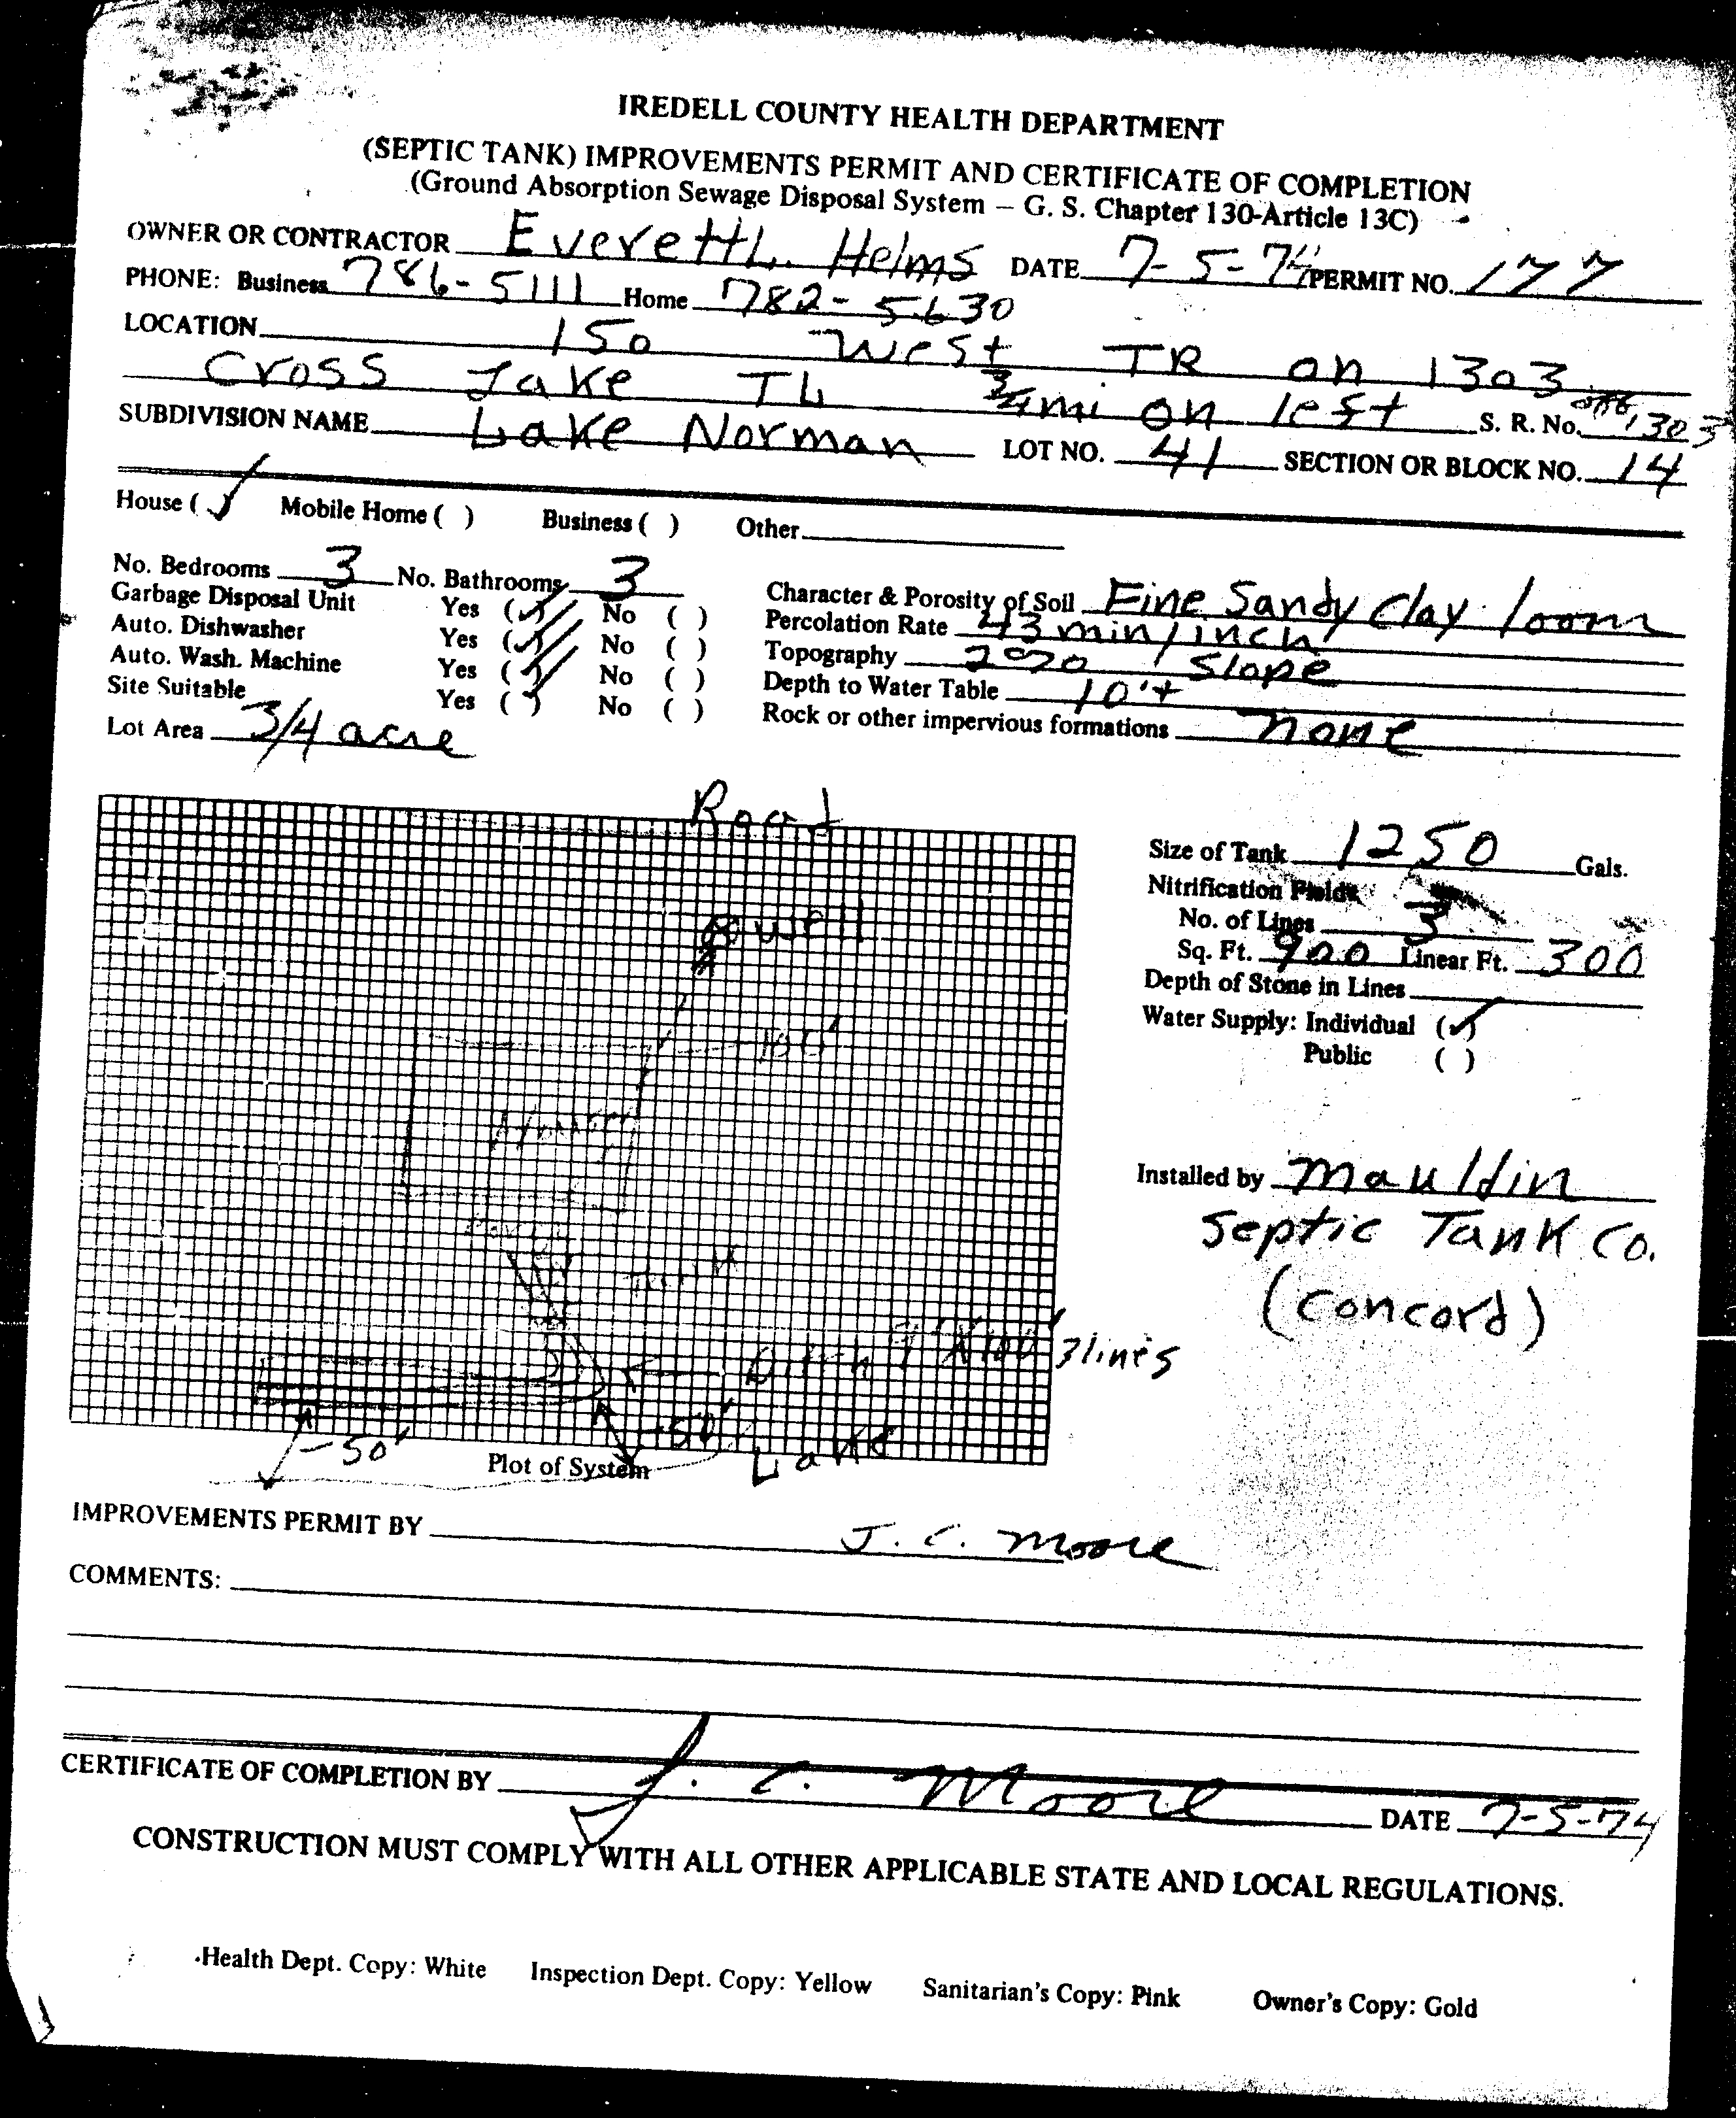 IREDELL COUNTY HEALTH DEPARTMENT
(SEPTIC TANK) IMPROVEMENTS PERMIT AND CERTIFICATE OF COMPLETION
(Ground Absorption Sewage Disposal System – G. S. Chapter 130-Article 13C)
OWNER OR CONTRACTOR Everett L. Helms DATE 7-5-74 PERMIT NO. 177
PHONE: Business 786-5111 Home 782-5630
LOCATION 150 West TR on 1303
Cross Lake TL 3/4 mi on left S. R. No. off 1303
SUBDIVISION NAME Lake Norman LOT NO. 41 SECTION OR BLOCK NO. 14
House (✓) Mobile Home ( ) Business ( ) Other
No. Bedrooms 3 No. Bathrooms 3
Garbage Disposal Unit Yes (✓) No ( )
Auto. Dishwasher Yes (✓) No ( )
Auto. Wash. Machine Yes (✓) No ( )
Site Suitable Yes (✓) No ( )
Lot Area 3/4 acre
Character & Porosity of Soil Fine Sandy Clay loom
Percolation Rate 43 min/inch
Topography 2% Slope
Depth to Water Table 10'+
Rock or other impervious formations none
Road
Well
100'
Ditch 3' X 100' 3 lines
-50'
-50'
Lake
Plot of System
Size of Tank 1250 Gals.
Nitrification Fields
No. of Lines 3
Sq. Ft. 900 Linear Ft. 300
Depth of Stone in Lines
Water Supply: Individual (✓)
Public ( )
Installed by Mauldin
Septic Tank Co.
(Concord)
IMPROVEMENTS PERMIT BY J. C. Moore
COMMENTS:
CERTIFICATE OF COMPLETION BY J. C. Moore DATE 7-5-74
CONSTRUCTION MUST COMPLY WITH ALL OTHER APPLICABLE STATE AND LOCAL REGULATIONS.
Health Dept. Copy: White Inspection Dept. Copy: Yellow Sanitarian's Copy: Pink Owner's Copy: Gold